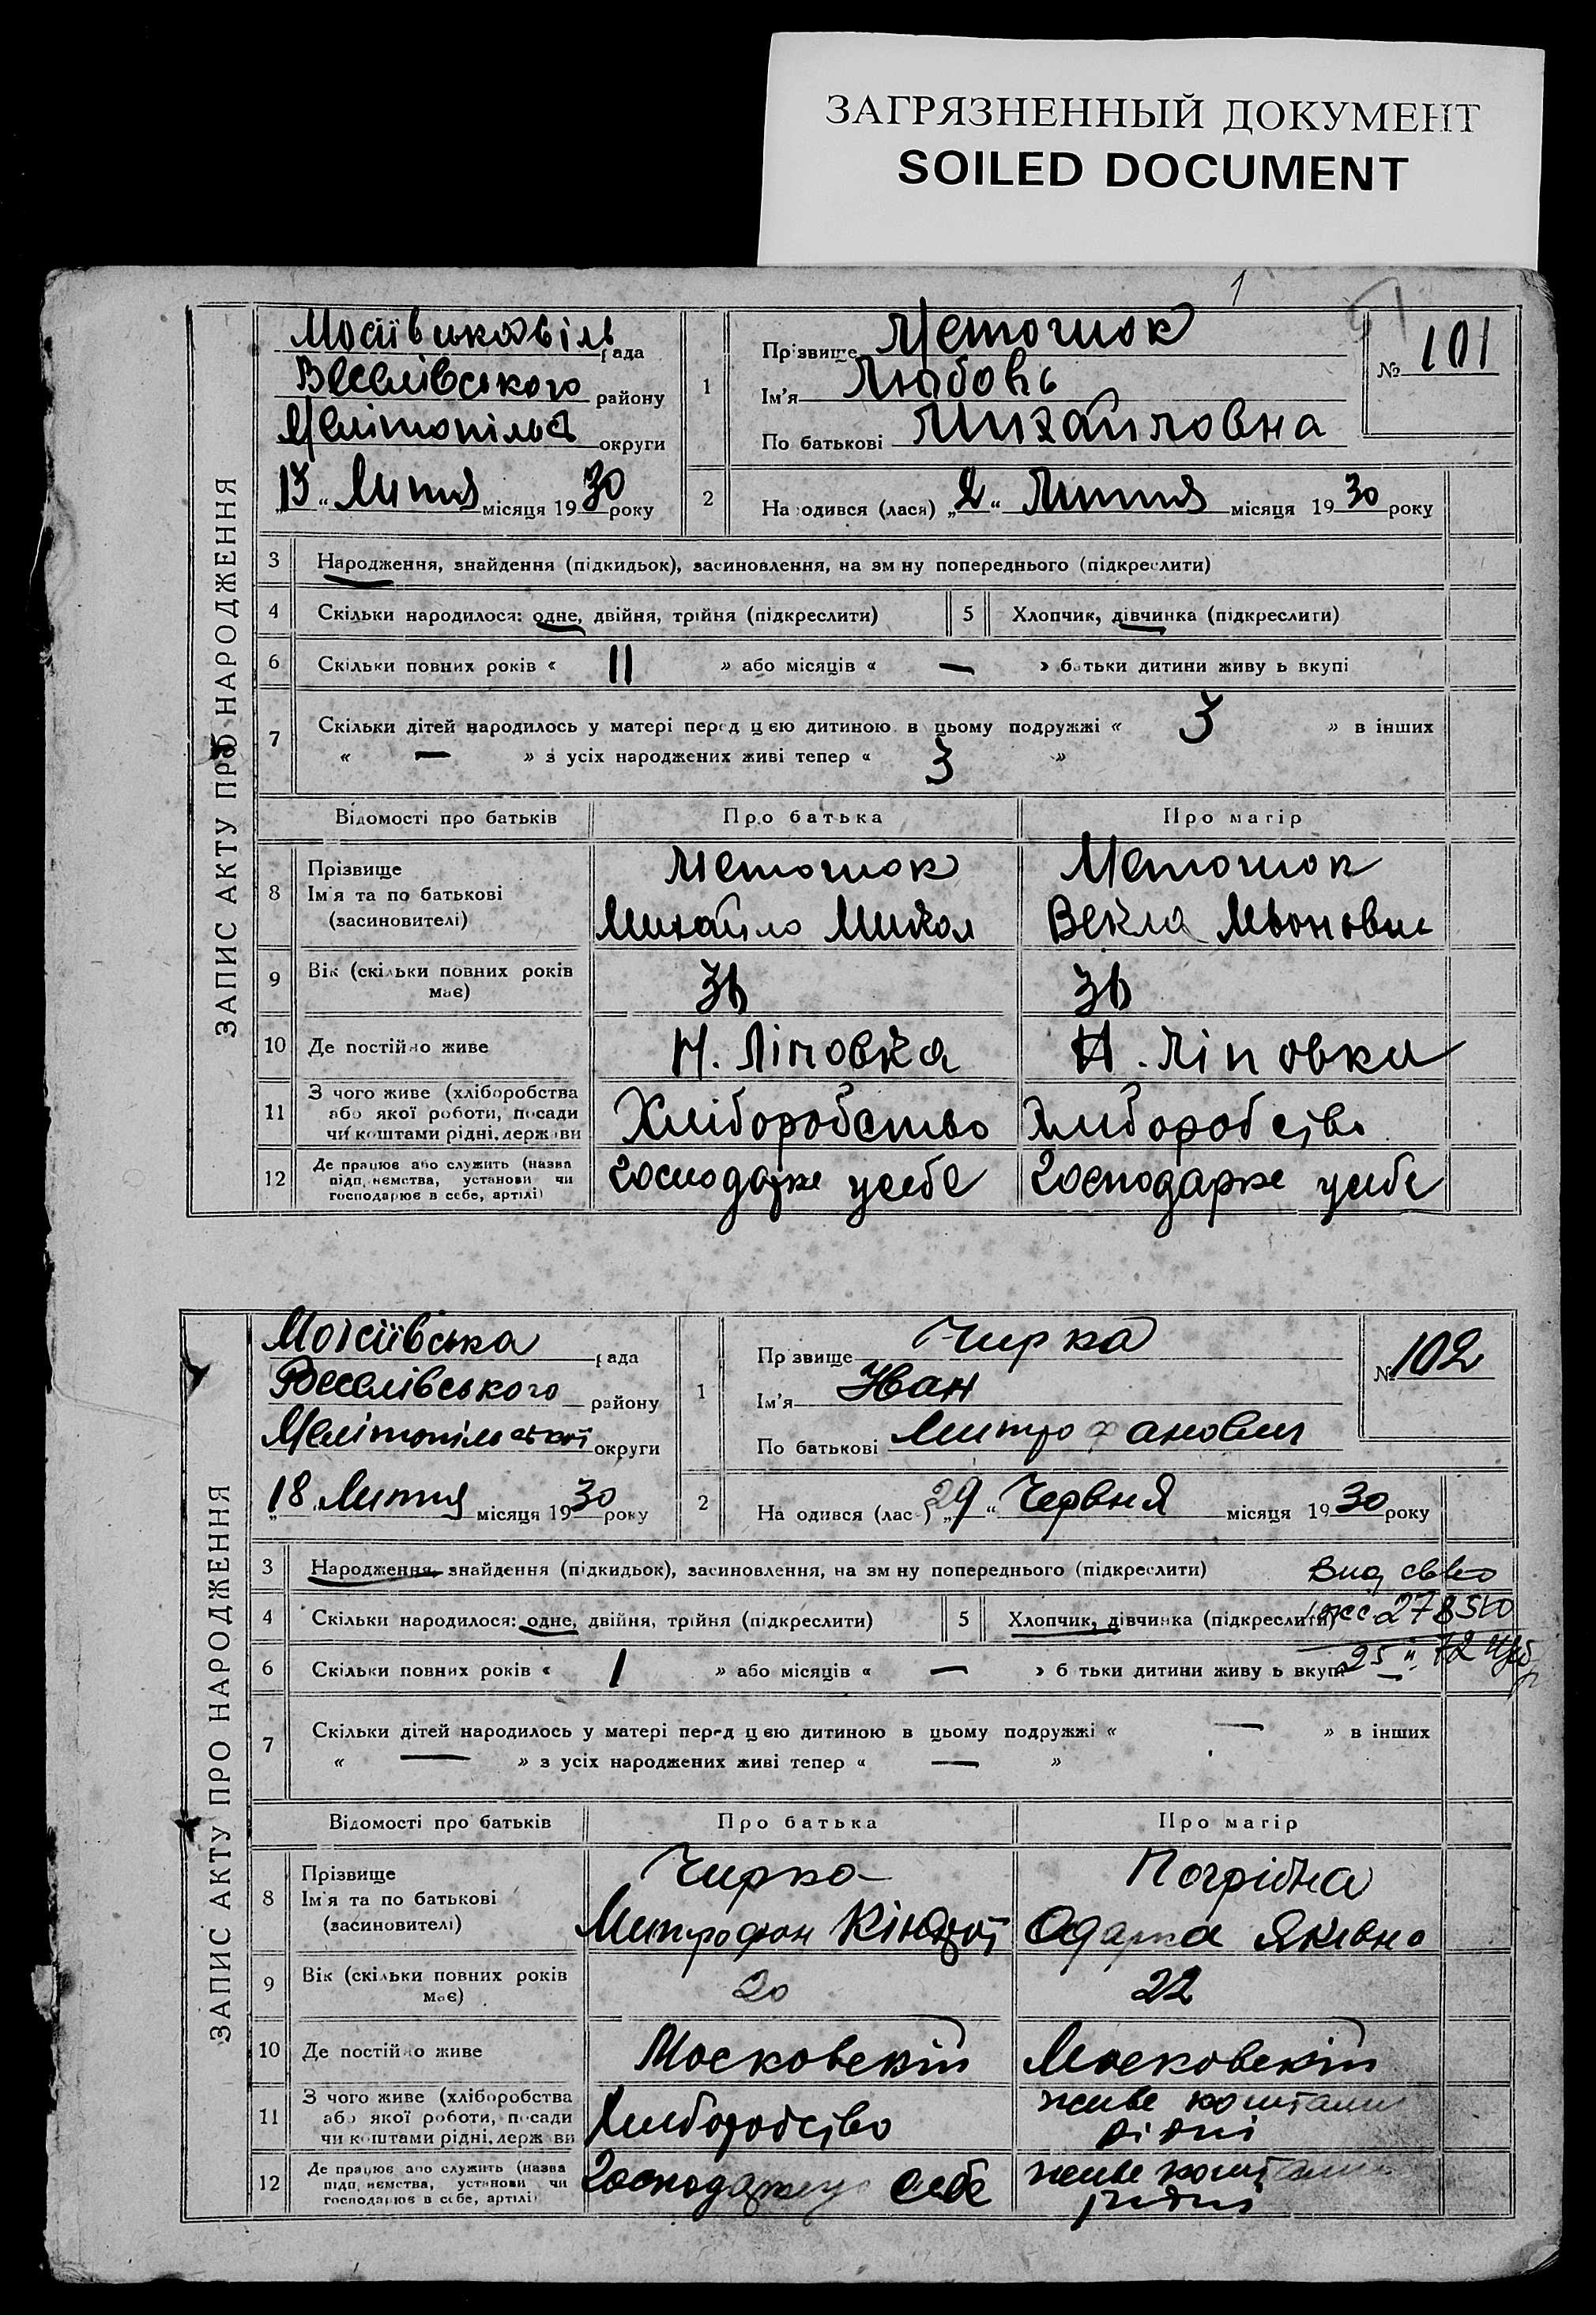 ЗАГРЯЗНЕННЫЙ ДОКУМЕНТ
SOILED DOCUMENT
1
ЗАПИС АКТУ ПРО НАРОДЖЕННЯ
рада
Веселівського району
округи
„13“ Липня місяця 1930 року
№ 101
1 Прізвище
Ім'я Любовь
По батькові Михайловна
2 На одився (лася) „2“ Липня місяця 1930 року
3 Народження, знайдення (підкидьок), засиновлення, на зм ну попереднього (підкреслити)
4 Скільки народилося: одне, двійня, трійня (підкреслити) 5 Хлопчик, дівчинка (підкреслити)
6 Скільки повних років « 11 » або місяців « — » батьки дитини живу ь вкупі
7 Скільки дітей народилось у матері перед цею дитиною в цьому подружжі « 3 » в інших
« — » з усіх народжених живі тепер « 3 »
Відомості про батьків Про батька Про матір
8 Прізвище
Ім'я та по батькові
(засиновителі)
Михайло Микол
Векла
9 Вік (скільки повних років має)
10 Де постійно живе Н. Ліповка Н. Ліповка
11 З чого живе (хліборобства
або якої роботи, посади
чи коштами рідні, держ ви
Хліборобство
12 Де працює або служить (назва
підп. ємства, установи чи
господарює в себе, артілі)
господарже усебе господарже усебе
ЗАПИС АКТУ ПРО НАРОДЖЕННЯ
Мосіївська рада
Веселівського району
Мелітопільської округи
„18 Липня місяця 1930 року
№ 102
1 Пр звище Чирка
Ім'я Іван
По батькові Митрофанович
2 На одився (лас ) „29“ Червня місяця 1930 року
3 Народження, знайдення (підкидьок), засиновлення, на зм ну попереднього (підкреслити)
4 Скільки народилося: одне, двійня, трійня (підкреслити) 5 Хлопчик, дівчинка (підкреслити)
6 Скільки повних років « 1 » або місяців « — » б тьки дитини живу ь вкупі
7 Скільки дітей народилось у матері перед цею дитиною в цьому подружжі « — » в інших
« — » з усіх народжених живі тепер « — »
Відомості про батьків Про батька Про матір
8 Прізвище
Ім'я та по батькові
(засиновителі)
Чирка Погрібна
Митрофан Одарка Яківна
9 Вік (скільки повних років має) 20 22
10 Де постійно живе
11 З чого живе (хліборобства
або якої роботи, посади
чи коштами рідні, держ ви
Хліборобство живе коштами
рідні
12 Де працює або служить (назва
підп. ємства, установи чи
господарює в себе, артілі)
себе живе коштами
рідні